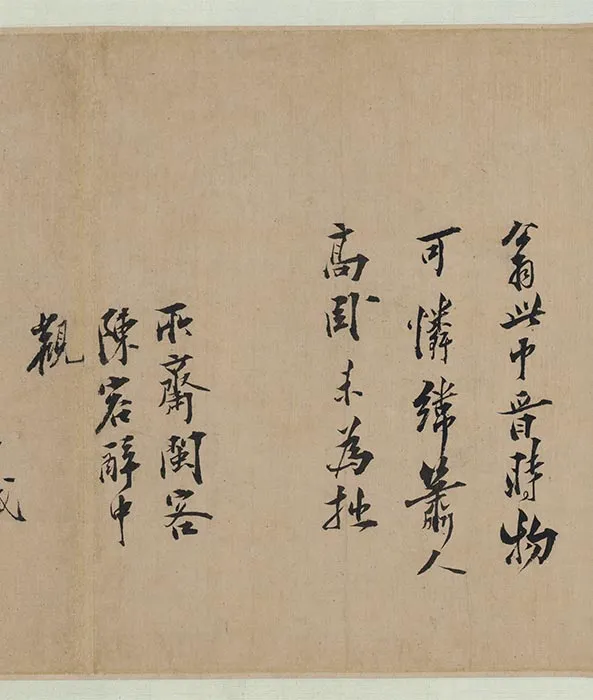 翁此中晋時物
可憐緯蕭人
高卧未為拙
所齋閩客
陳容醉中
觀